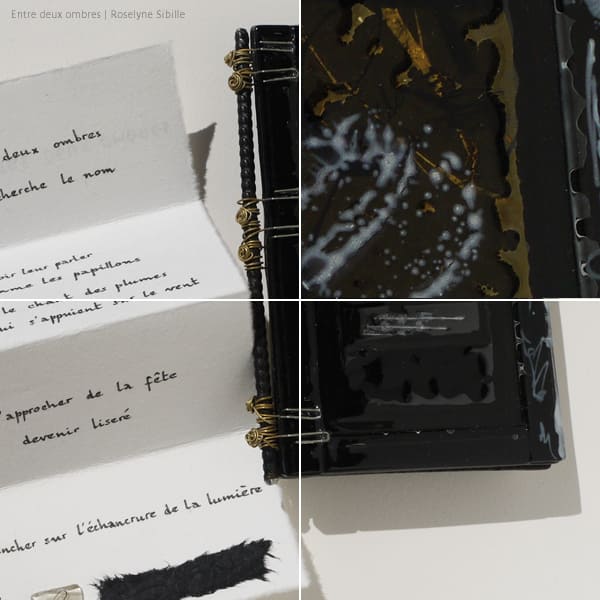 Entre deux ombres | Roselyne Sibille
deux ombres
cherche le nom
leur parler
les papillons
le chant des plumes
s'appuient sur le vent
approcher de la fête
devenir liseré
sur l'échancrure de la lumière